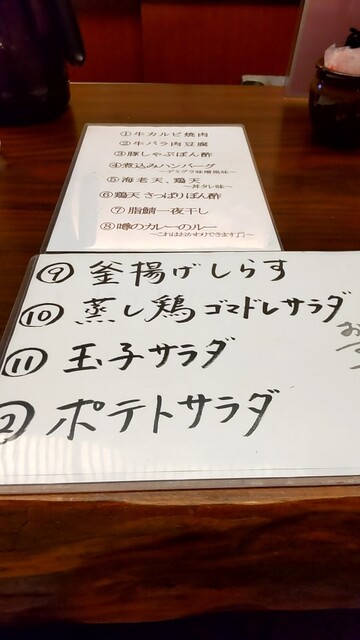 ①牛カルビ焼肉
②牛バラ肉豆腐
③豚しゃぶぽん酢
④煮込みハンバーグ
～デミグラ味噌風味～
⑤海老天、鶏天
～丼タレ味～
⑥鶏天 さっぱりぽん酢
⑦脂鯖一夜干し
⑧噂のカレーのルー
～これはおかわりできます♫～
⑨ 釜揚げしらす
⑩ 蒸し鶏ゴマドレサラダ
⑪ 玉子サラダ
⑫ ポテトサラダ